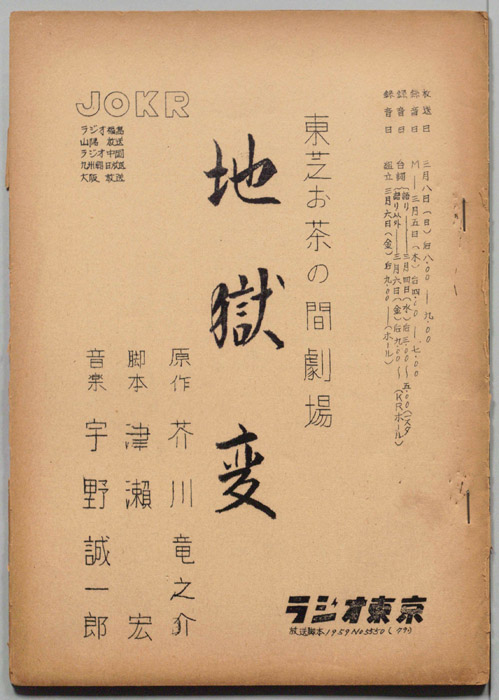 放送日 三月八日(日)后八.〇〇 — 九.〇〇
録音日 M — 三月五日(木)后四.〇〇 — 七.〇〇
録音日 台詞(語り)——三月四日(水)后三.〇〇〜五.〇〇(スタ
(語り以外——三月六日(金)后九.〇〇〜(KRホール)
録音日 組立 三月六日(金)后九.〇〇——(ホール)
東芝お茶の間劇場
地獄変
JOKR
ラジオ福島
山陽放送
ラジオ中国
九州朝日放送
大阪放送
原作 芥川竜之介
脚本 津瀬宏
音楽 宇野誠一郎
ラジオ東京
放送脚本1959 No5550